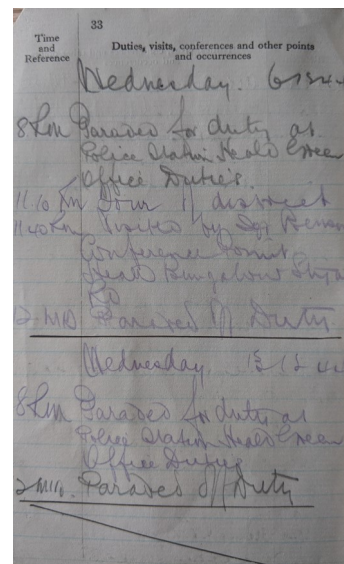 33
Time and Reference
Duties, visits, conferences and other points and occurrences
Wednesday.
8 Pm Paraded for duty at
Police Station Heald Green
Office Duties.
11.10 Pm Tour of district
Visited by Sgt
Conference Point
Heald
Rd
Paraded Off Duty
Wednesday,
8 Pm Paraded for duty at
Police Station Heald Green
Office Duties
Paraded Off Duty